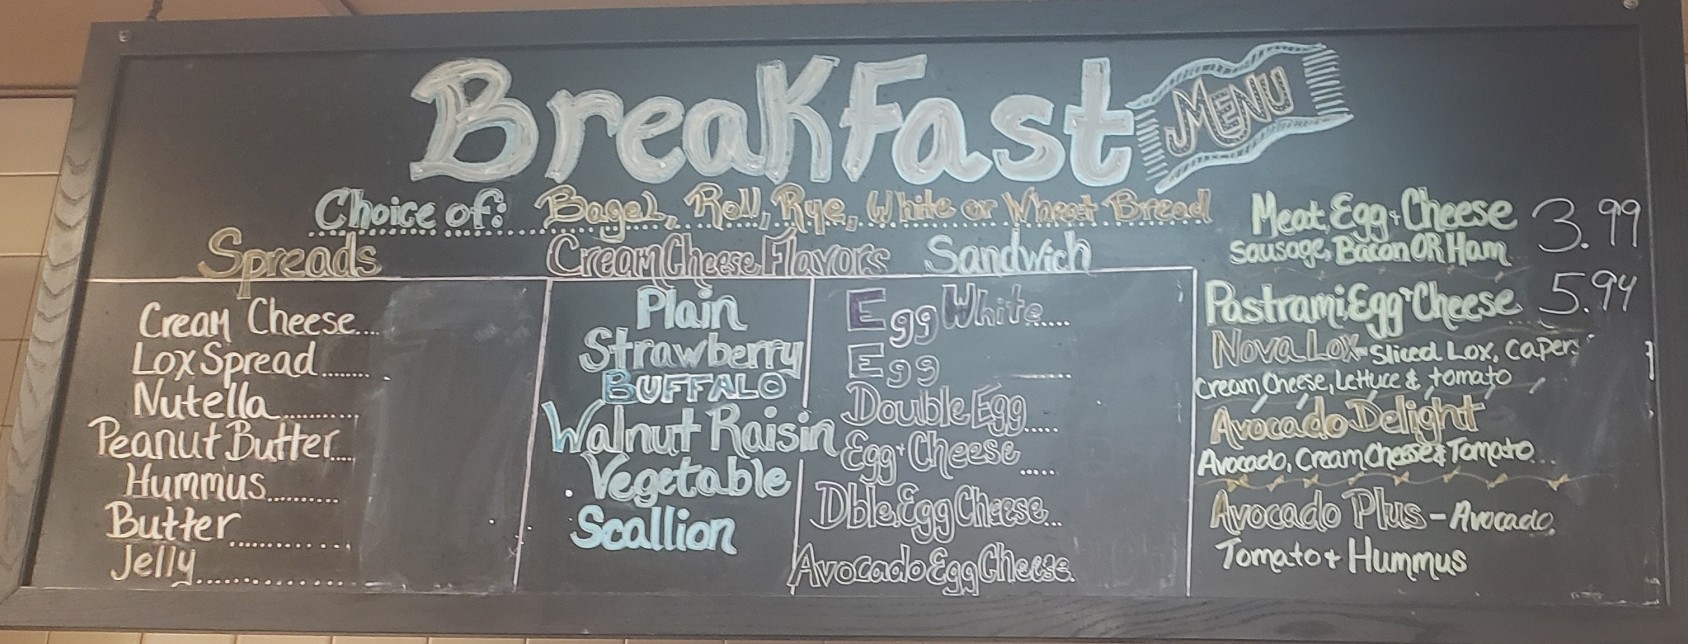 BreaKFast MENU
Choice of: Bagel, Roll, Rye, White or Wheat Bread
Spreads
Cream Cheese....
Lox Spread........
Nutella............
Peanut Butter....
Hummus..........
Butter..............
Jelly..................
Cream Cheese Flavors
Plain
Strawberry
BUFFALO
Walnut Raisin
Vegetable
Scallion
Sandwich
Egg White......
Egg ........
Double Egg.....
Egg + Cheese.....
Dble.Egg Cheese...
Avocado Egg Cheese.
Meat, Egg + Cheese 3.99
Sausage, Bacon OR Ham
Pastrami, Egg + Cheese 5.94
Nova Lox - Sliced Lox, Capers
Cream Cheese, Lettuce & tomato
Avocado Delight
Avocado, Cream Cheese & Tomato...
Avocado Plus - Avocado,
Tomato + Hummus